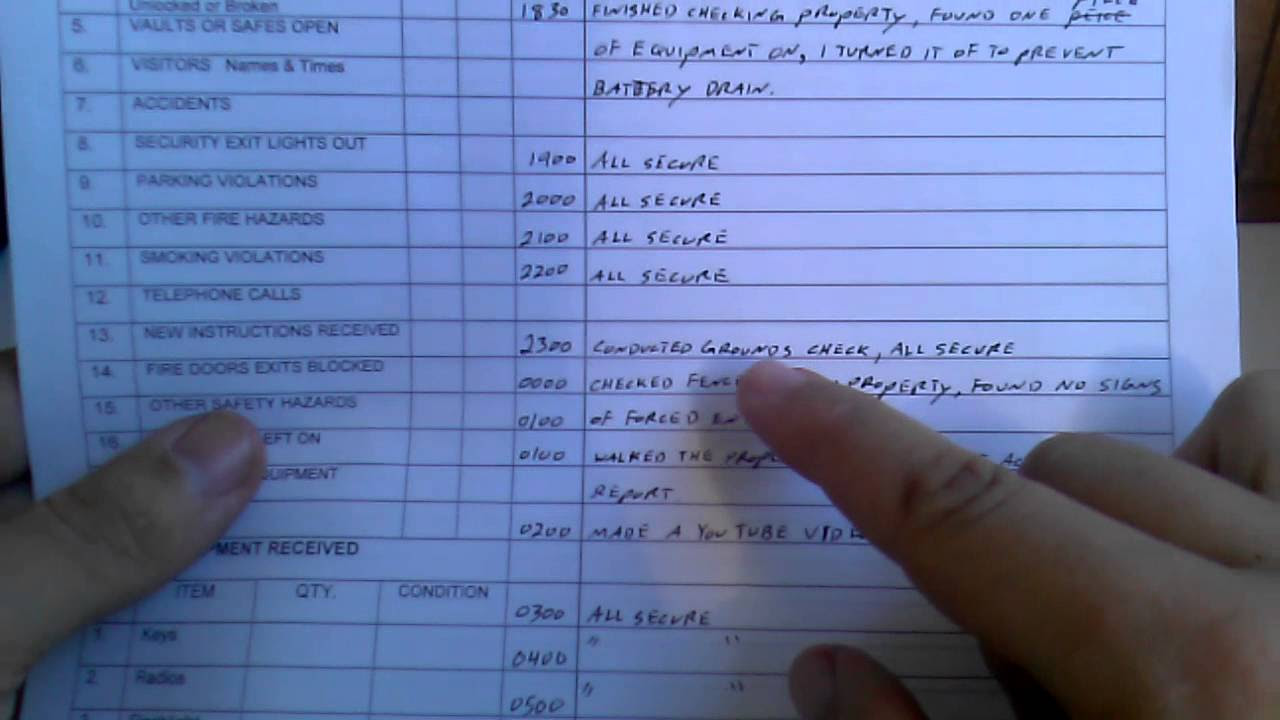 Unlocked or Broken
1830 FINISHED CHECKING PROPERTY, FOUND ONE
5. VAULTS OR SAFES OPEN
OF EQUIPMENT ON, I TURNED IT OF TO PREVENT
6. VISITORS Names & Times
BATTERY DRAIN.
7. ACCIDENTS
8. SECURITY EXIT LIGHTS OUT
1900 ALL SECURE
9. PARKING VIOLATIONS
2000 ALL SECURE
10. OTHER FIRE HAZARDS
2100 ALL SECURE
11. SMOKING VIOLATIONS
2200 ALL SECURE
12. TELEPHONE CALLS
13. NEW INSTRUCTIONS RECEIVED
2300 CONDUCTED GROUNDS CHECK, ALL SECURE
14. FIRE DOORS EXITS BLOCKED
0000 CHECKED PROPERTY, FOUND NO SIGNS
15. OTHER SAFETY HAZARDS
0100 OF FORCED
16. ON
0100 WALKED THE
REPORT
0200 MADE A YOU TUBE
RECEIVED
ITEM QTY. CONDITION
0300 ALL SECURE
1. Keys
0400 " "
2. Radios
0500 " "